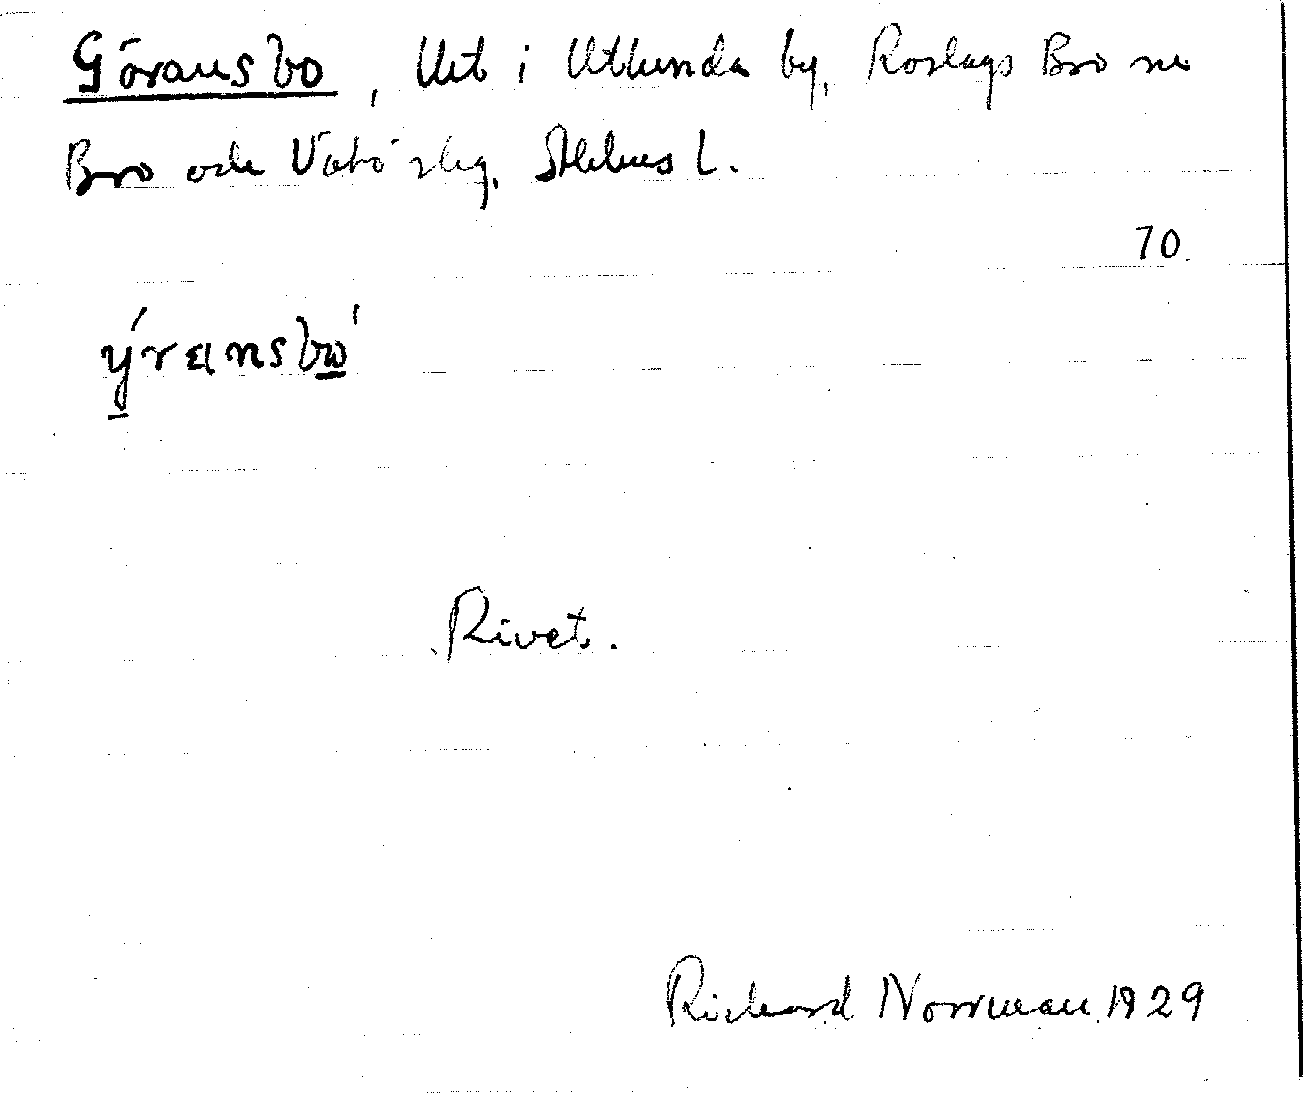 Göransbo, Uet i Utlunda by, Roslags Bro sn
Bro och Vätö slg, Sthlms L.
70
ýransbω'
Rivet.
Richard Norrman 1929